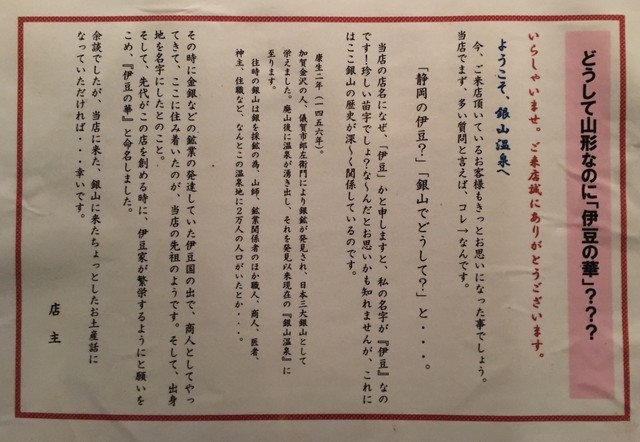 どうして山形なのに「伊豆の華」？？？
いらしゃいませ。ご来店誠にありがとうございます。
ようこそ、銀山温泉へ
今、ご来店頂いているお客様もきっとお思いになった事でしょう。
当店でまず、多い質問と言えば、コレ→なんです。
「静岡の伊豆？」「銀山でどうして？」と・・・。
当店の店名になぜ、「伊豆」かと申しますと、私の名字が『伊豆』なの
です！珍しい苗字でしょ？な〜んだとお思いかも知れませんが、これに
はここ銀山の歴史が深〜く関係しているのです。
康生二年（一四五六年）。
加賀金沢の人、儀賀市郎左衛門により銀鉱が発見され、日本三大銀山として
栄えました。廃山後に温泉が湧き出し、それを発見以来現在の『銀山温泉』に
至ります。
往時の銀山は銀を採鉱の為、山師、鉱業関係者のほか職人、商人、医者、
神主、住職など、なんとこの温泉地に２万人の人口がいたとか・・・。
その時に金銀などの鉱業の発達していた伊豆国の出で、商人としてやっ
てきて、ここに住み着いたのが、当店の先祖のようです。そして、出身
地を名字にしたとのこと。
そして、先代がこの店を創める時に、伊豆家が繁栄するようにと願いを
こめ、『伊豆の華』と命名しました。
余談でしたが、当店に来た、銀山に来たちょっとしたお土産話に
なっていただければ・・・幸いです。
店主